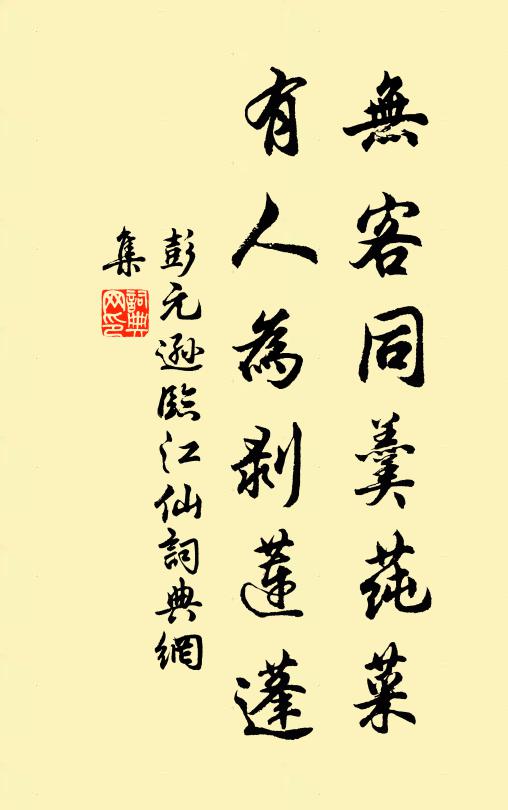 無客同羹莼菜
有人為剥蓮蓬
彭元遜臨江仙詞典網
集
詞典網印